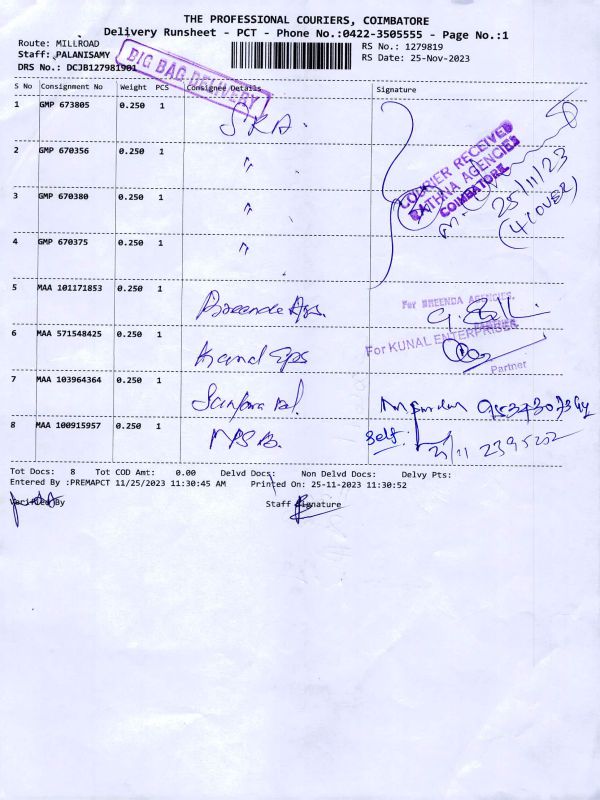 THE PROFESSIONAL COURIERS, COIMBATORE
Delivery Runsheet - PCT - Phone No.:0422-3505555 - Page No.:1
Route: MILLROAD
RS No.: 1279819
Staff: PALANISAMY
RS Date: 25-Nov-2023
DRS No.: DCJB127981901
BIG BAG DELIVERY
S No Consignment No Weight PCS Consignee Details Signature
1 GMP 673805 0.250 1 SRA.
COURIER RECEIVED
RATHNA AGENCIES
COIMBATORE
25/11/23
(4 COVER)
2 GMP 670356 0.250 1 "
3 GMP 670380 0.250 1 "
4 GMP 670375 0.250 1 "
5 MAA 101171853 0.250 1 Breenda Ags.
For BREENDA AGENCIES,
6 MAA 571548425 0.250 1 Kunal Eps
For KUNAL ENTERPRISES
Partner
7 MAA 103964364 0.250 1
8 MAA 100915957 0.250 1
Self.
Tot Docs: 8 Tot COD Amt: 0.00 Delvd Docs: Non Delvd Docs: Delvy Pts:
Entered By :PREMAPCT 11/25/2023 11:30:45 AM Printed On: 25-11-2023 11:30:52
Verified By Staff Signature